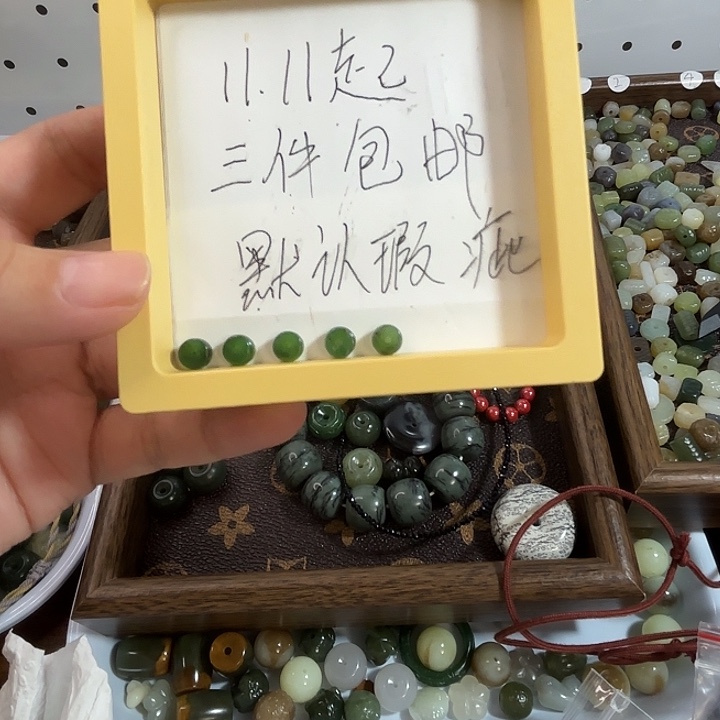 11.11起
三件包邮
默认瑕疵
2
4